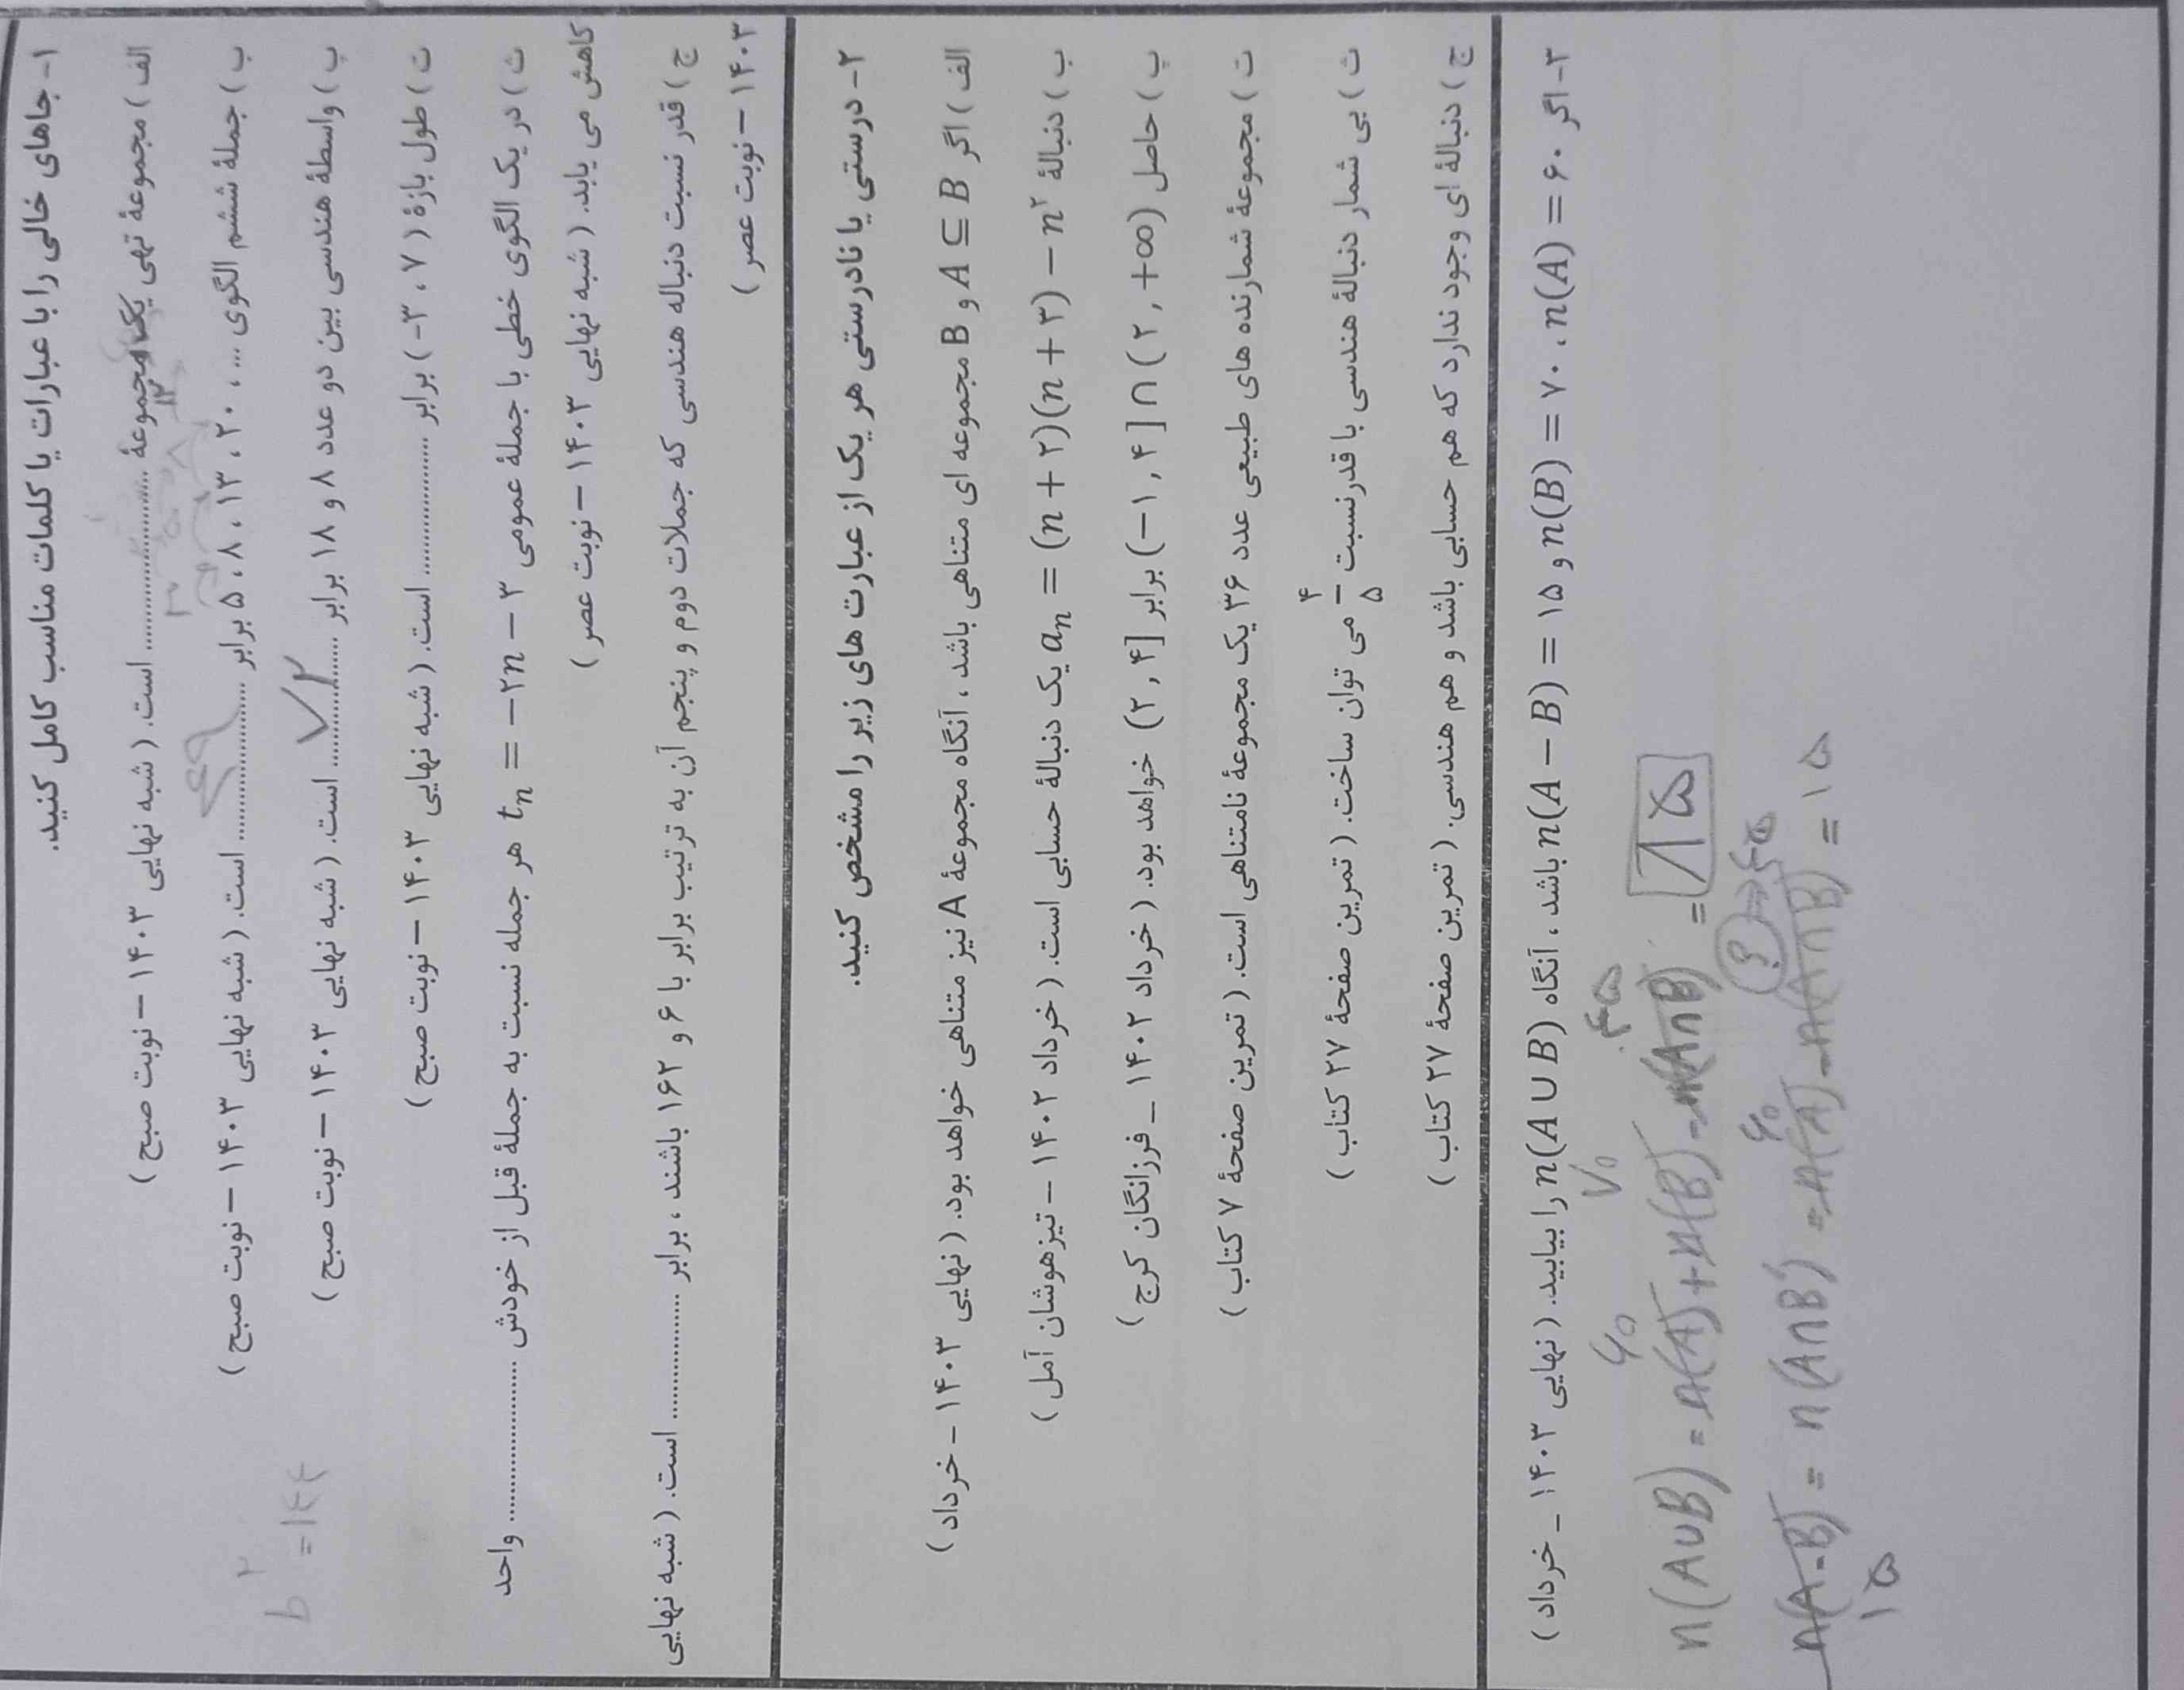 ۱- جاهای خالی را با عبارات یا کلمات مناسب کامل کنید.
الف) مجموعۀ تهی یک مجموعۀ ................ است. (شبه نهایی ۱۴۰۳ – نوبت صبح)
ب) جملۀ ششم الگوی ... ، ۲۰ ، ۱۳ ، ۸ ، ۵ برابر ................ است. (شبه نهایی ۱۴۰۳ – نوبت صبح)
پ) واسطۀ هندسی بین دو عدد ۸ و ۱۸ برابر ................ است. (شبه نهایی ۱۴۰۳ – نوبت صبح)
b² = ۱۴۴
ت) طول بازۀ (۷ ، ۳-) برابر ................ است. (شبه نهایی ۱۴۰۳ – نوبت صبح)
ث) در یک الگوی خطی با جملۀ عمومی tₙ = −۲n − ۳ هر جمله نسبت به جملۀ قبل از خودش ................ واحد
کاهش می یابد. (شبه نهایی ۱۴۰۳ – نوبت عصر)
ج) قدر نسبت دنباله هندسی که جملات دوم و پنجم آن به ترتیب برابر با ۶ و ۱۶۲ باشند ، برابر ................ است. (شبه نهایی
۱۴۰۳ – نوبت عصر)
۲- درستی یا نادرستی هر یک از عبارت های زیر را مشخص کنید.
الف) اگر A ⊆ B و B مجموعه ای متناهی باشد ، آنگاه مجموعۀ A نیز متناهی خواهد بود. (نهایی ۱۴۰۳ – خرداد)
ب) دنبالۀ aₙ = (n + ۲)(n + ۳) − n² یک دنبالۀ حسابی است. (خرداد ۱۴۰۲ – تیزهوشان آمل)
پ) حاصل (−۱, ۴] ∩ (۲, +∞) برابر (۲, ۴] خواهد بود. (خرداد ۱۴۰۲ _ فرزانگان کرج)
ت) مجموعۀ شمارنده های طبیعی عدد ۳۶ یک مجموعۀ نامتناهی است. (تمرین صفحۀ ۷ کتاب)
ث) بی شمار دنبالۀ هندسی با قدرنسبت ۴/۵ می توان ساخت. (تمرین صفحۀ ۲۷ کتاب)
ج) دنبالۀ ای وجود ندارد که هم حسابی باشد و هم هندسی. (تمرین صفحۀ ۲۷ کتاب)
۳- اگر n(A) = ۶۰ ، n(B) = ۷۰ و n(A − B) = ۱۵ باشد ، آنگاه n(A ∪ B) را بیابید. (نهایی ۱۴۰۳ _ خرداد)
۶۰ ۷۰ ۴۵
n(A∪B) = n(A) + n(B) - n(A∩B) = ۸۵
۶۰ ? ⇒ ۴۵
n(A-B) = n(A∩B') = n(A) - n(A∩B) = ۱۵
۱۵